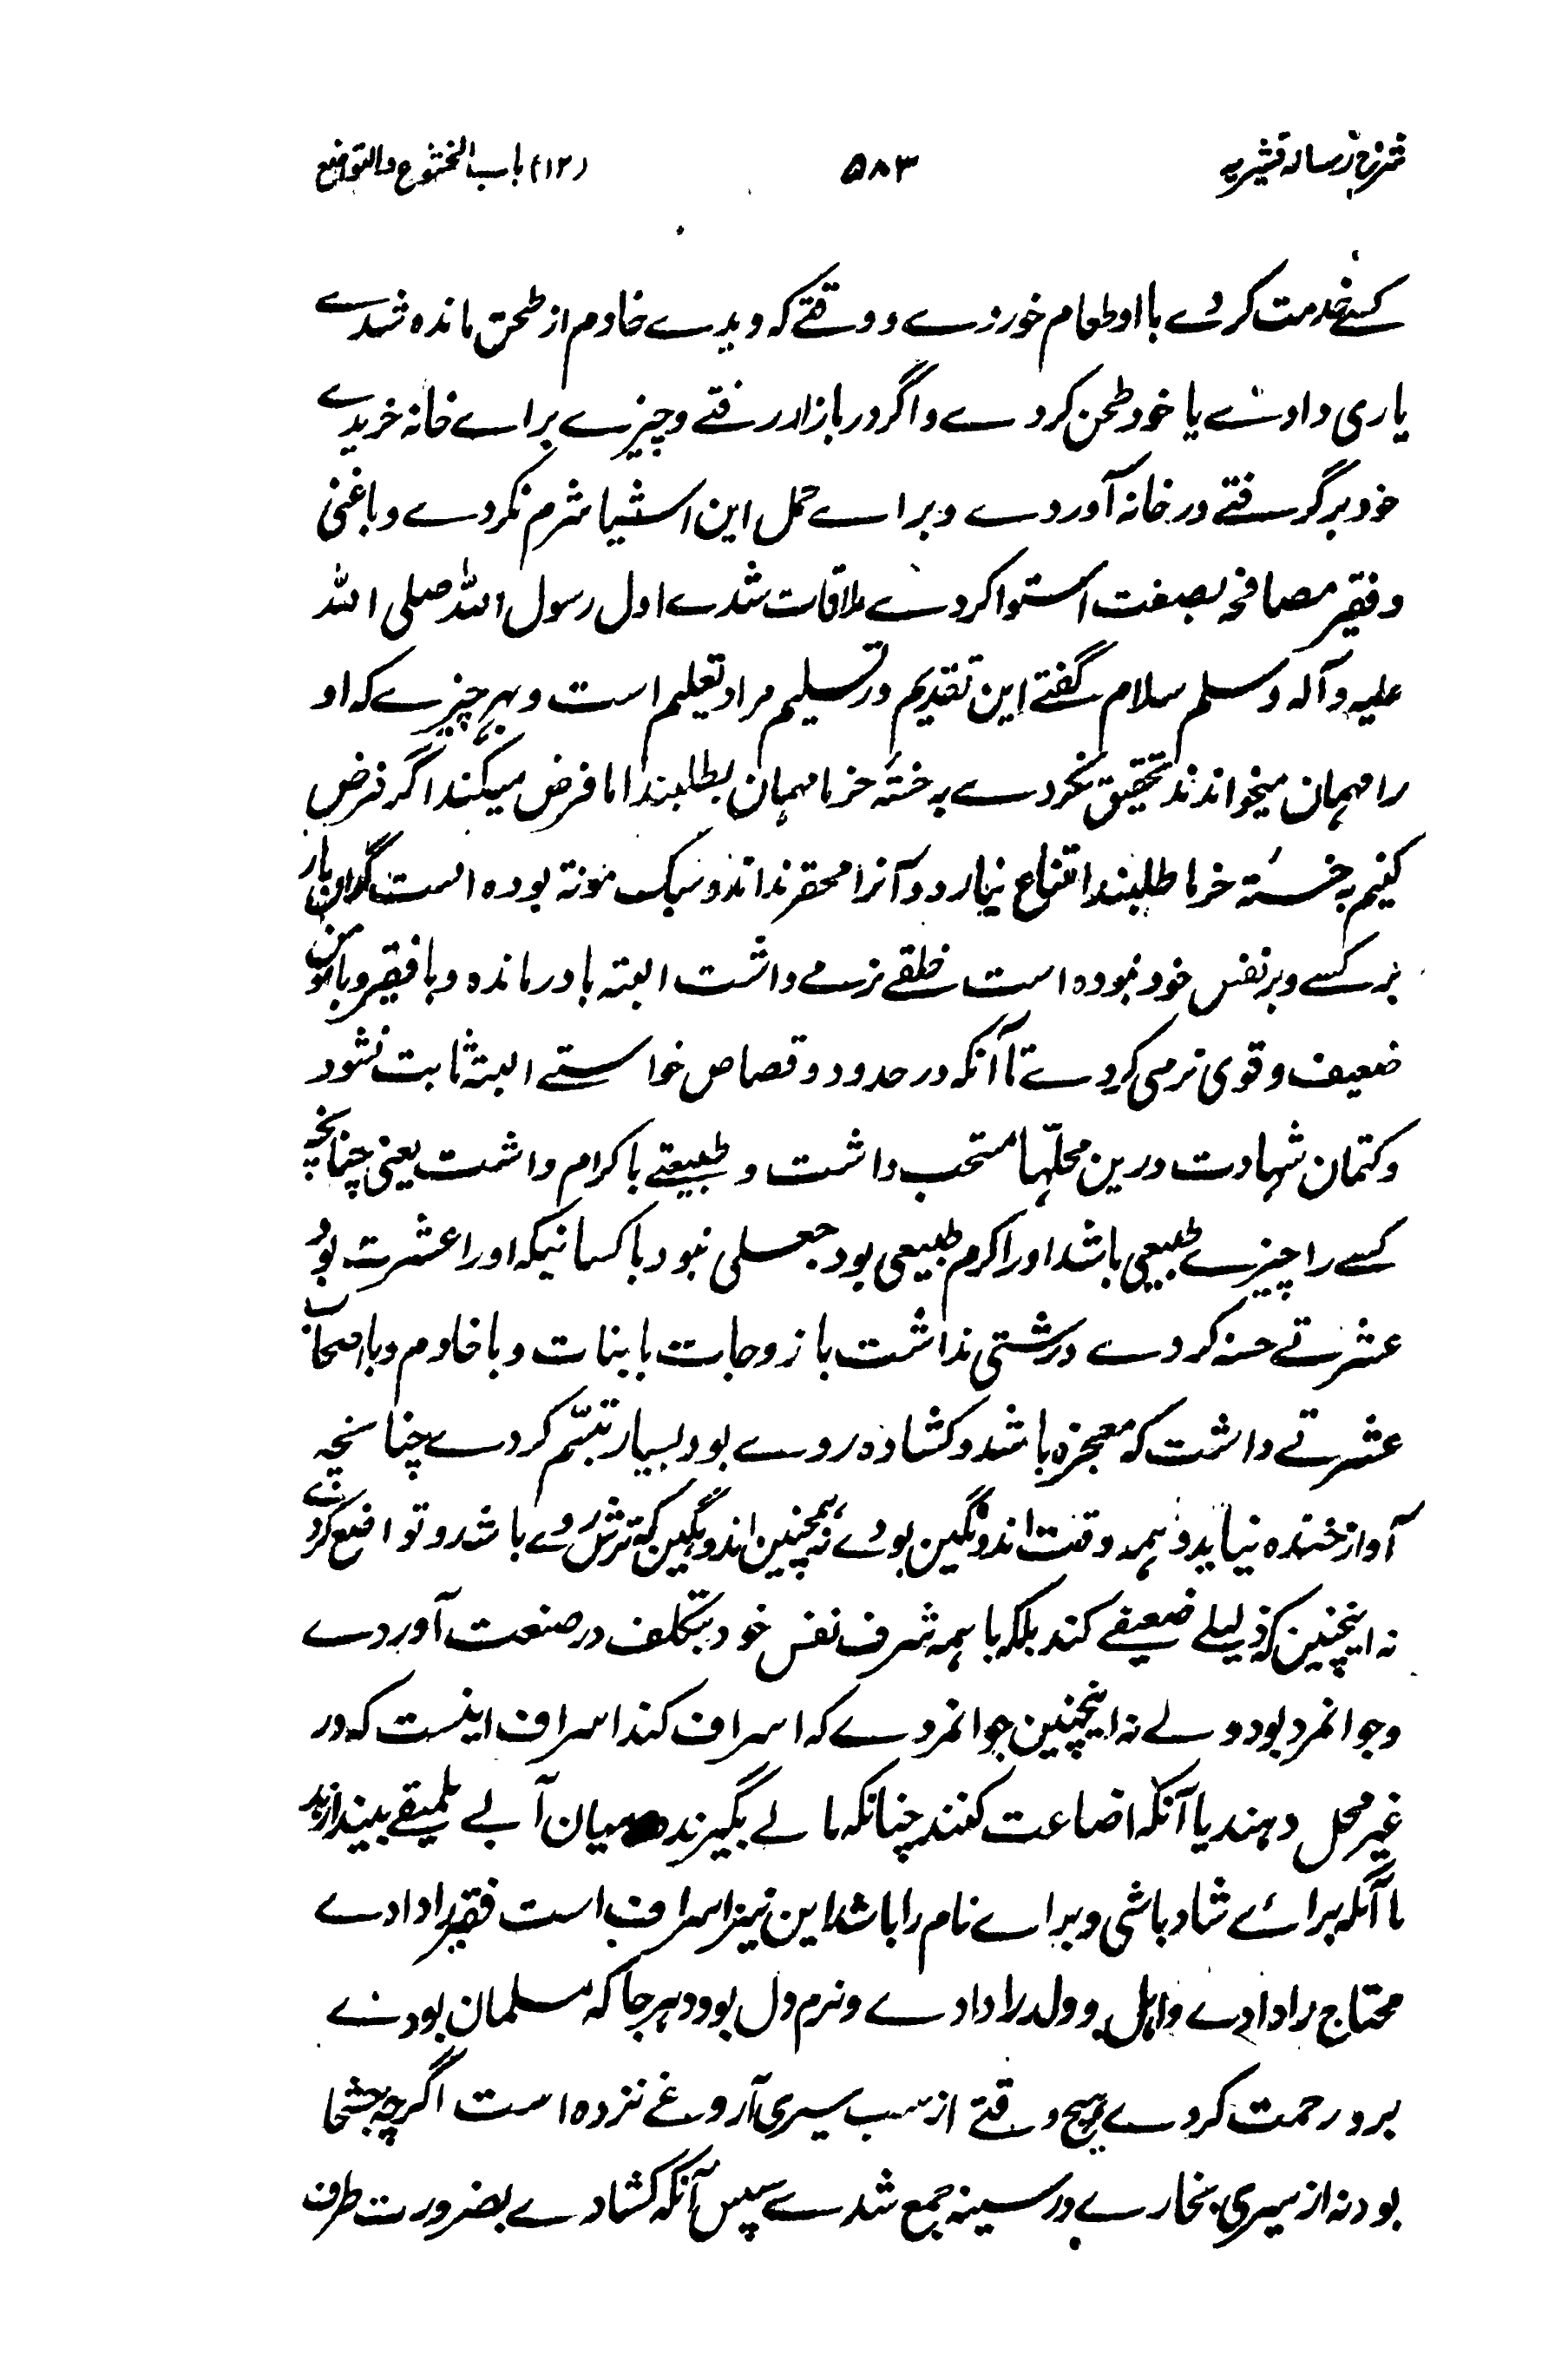 شرح رسالہ قشیریہ ۵۸۳ (۱۲) باب الخشوع والتواضع
کسے خدمت کردے با او طعام خوردے و وقتے کہ دیدے خادم از طحن ماندہ شدے
یاری دادے یا خود طحن کردے و اگر در بازار رفتے و چیزے براے خانہ خریدے
خود برگرفتے در خانہ آوردے و براے حمل این اشیا شرم نکردے و با غنی
و فقیر مصافحہ بصفت استوا کردے ملاقات شدے اول رسول اللہ صلی اللہ
علیہ و آلہ و سلم سلام گفتے این تقدیم در تسلیم مراد تعلیم است و بہر چیزے کہ او
را مہمان میخواندند تحقیق نکردے بہ خستۂ خرما مہمان بطلبند اما فرض میکند اگر فرض
کنیم بہ خستۂ خرما طلبند امتناع نیارد و آنرا محقر نداند و سبک مونۃ بودہ است گران بار
بر کسے و بر نفس خود نبودہ است خلقے نرمے داشت البتہ با درماندہ و با فقیر و با مومن
ضعیف و قوی نرمی کردے تا آنکہ در حدود و قصاص خواستے البتہ ثابت نشود
و کتمان شہادت درین محلّہا مستحب داشت و طبیعتے با کرام داشت یعنی چنانچہ
کسے را چیزے طبیعی باشد او را کرم طبیعی بود جعلی نبود با کسانیکہ او را عشرت بود
عشرتے حسنہ کردے درشتی نداشت با زوجات با بنات و با خادم و با اصحاب
عشرتے داشت کہ معجزہ باشد و کشادہ روے بود بسیار تبسّم کردے چنانچہ
آواز خندہ نیاید و ہمہ وقت اندوہگین بودے نہ ہمچنین اندوہگین کہ ترش روے باشد و تواضع کردے
نہ اینچنین کہ ذلیلے ضعیفے کند بلکہ با ہمہ شرف نفس خود بتکلف در صنعت آوردے
و جوانمرد بود ولے نہ اینچنین جوانمردے کہ اسراف کند اسراف اینست کہ در
غیر محل دہند یا آنکہ اضاعت کنند چنانکہ مالے بگیرند میان آبے عمیقے بیندازند
یا آنکہ براۓ شاد باشی و براے نام را باشد این نیز اسراف است فقیر را دادے
محتاج را دادے و اہل و ولد را دادے و نرم دل بود و ہر جا کہ مسلمان بودے
برو رحمت کردے ہیچ وقتے از سبب سیری آروغے نزدہ است اگرچہ جشحا
بود نہ از سیری بخارے در سینہ جمع شدے سپس آنکہ کشادے بضرورت طرف